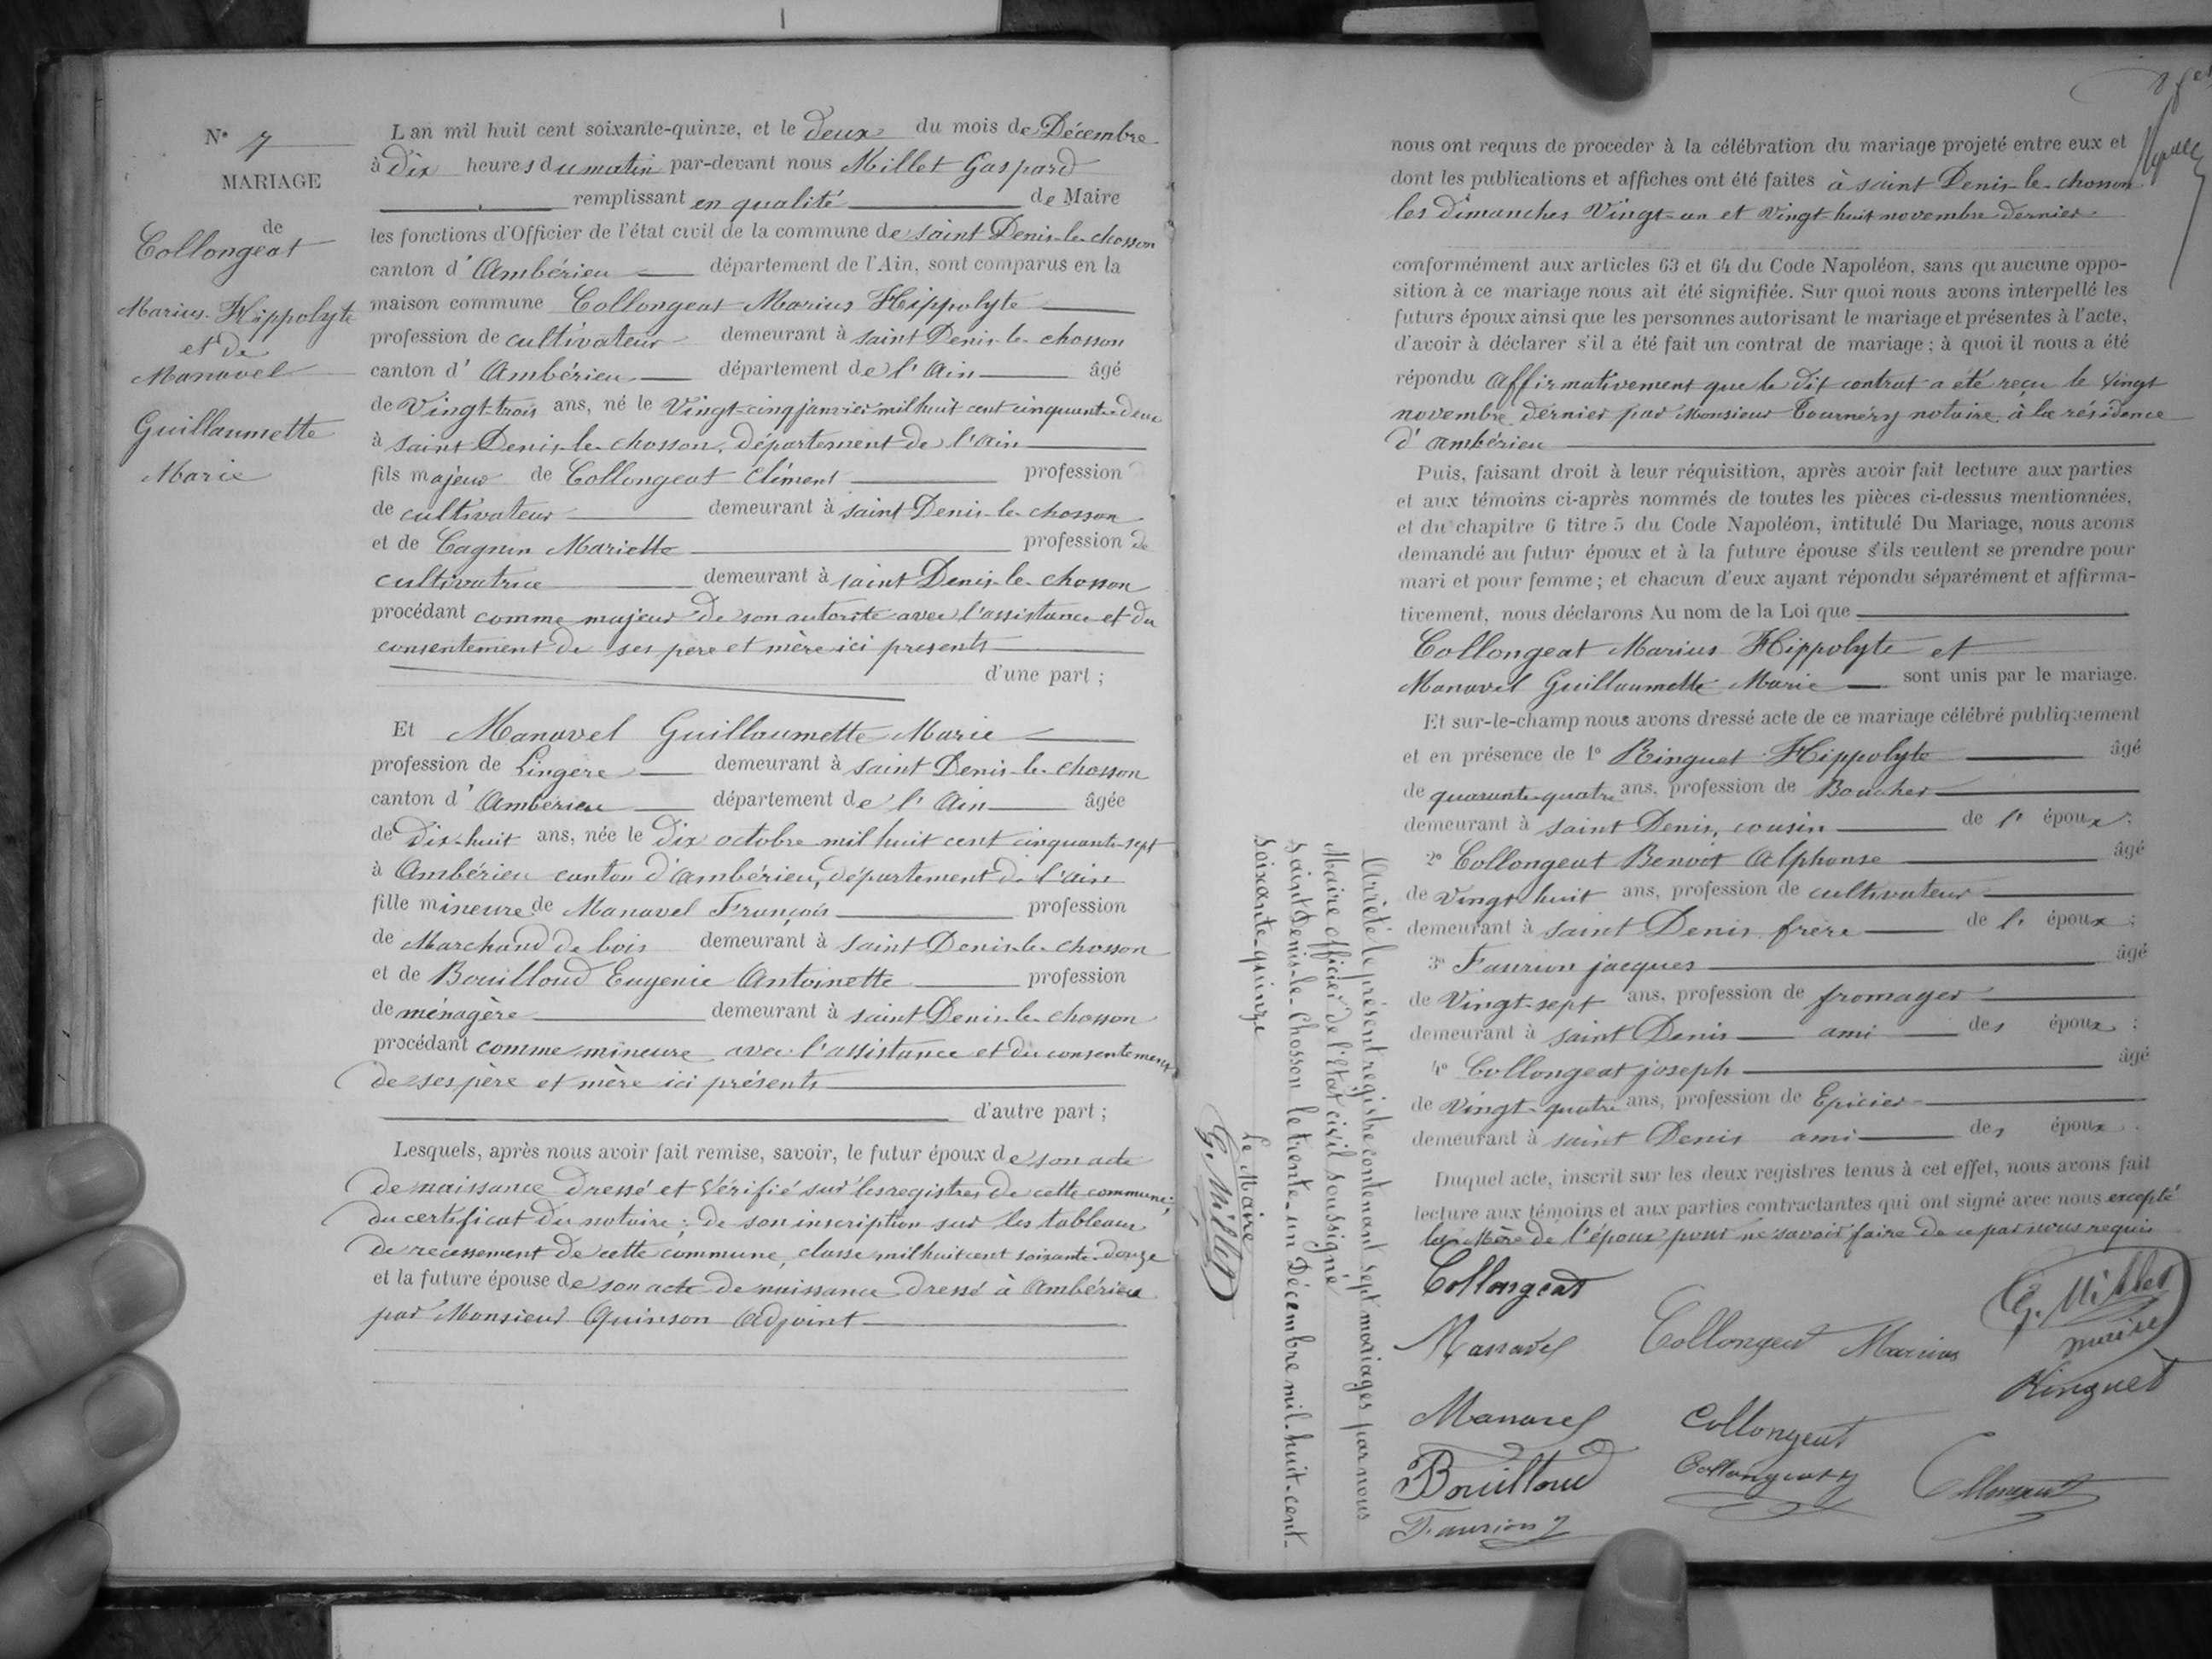 N° 7
MARIAGE
de
Collongeat
Marius Hippolyte
et de
Manavel
Guillaumette
Marie
L'an mil huit cent soixante-quinze, et le deux du mois de Décembre
à Dix heures du matin par-devant nous Millet Gaspard
remplissant en qualité de Maire
les fonctions d'Officier de l'état civil de la commune de saint Denis-le-chosson
canton d'Ambérieu département de l'Ain, sont comparus en la
maison commune Collongeat Marius Hippolyte
profession de cultivateur demeurant à saint Denis-le-chosson
canton d'Ambérieu département de l'Ain âgé
de Vingt-trois ans, né le Vingt-cinq janvier mil huit cent cinquante-deux
à saint Denis-le-chosson, département de l'ain
fils majeur de Collongeat Clément profession
de cultivateur demeurant à saint Denis-le-chosson
et de Cagnin Mariette profession de
cultivatrice demeurant à saint Denis-le-chosson
procédant comme majeur de son autorité avec l'assistance et du
consentement de ses père et mère ici présents
d'une part ;
Et Manavel Guillaumette Marie
profession de Lingère demeurant à saint Denis-le-chosson
canton d'Ambérieu département de l'Ain âgée
de Dix-huit ans, née le Dix octobre mil huit cent cinquante-sept
à Ambérieu canton d'ambérieu, département de l'ain
fille mineure de Manavel François profession
de Marchand de bois demeurant à saint Denis-le-chosson
et de Bouilloud Eugenie Antoinette profession
de ménagère demeurant à saint Denis-le-chosson
procédant comme mineure avec l'assistance et du consentement
de ses père et mère ici présents
d'autre part ;
Lesquels, après nous avoir fait remise, savoir, le futur époux de son acte
de naissance dressé et vérifié sur les registres de cette commune ;
du certificat du notaire ; de son inscription sur les tableaux
de recensement de cette commune, classe mil huit cent soixante-douze
et la future épouse de son acte de naissance dressé à Ambérieu
par Monsieur Quinson Adjoint
nous ont requis de procéder à la célébration du mariage projeté entre eux et
dont les publications et affiches ont été faites à saint Denis-le-chosson
les dimanches Vingt-un et Vingt-huit novembre dernier
conformément aux articles 63 et 64 du Code Napoléon, sans qu'aucune oppo-
sition à ce mariage nous ait été signifiée. Sur quoi nous avons interpellé les
futurs époux ainsi que les personnes autorisant le mariage et présentes à l'acte,
d'avoir à déclarer s'il a été fait un contrat de mariage ; à quoi il nous a été
répondu affirmativement que le dit contrat a été reçu le vingt
novembre dernier par Monsieur Tournéry notaire à la résidence
d'ambérieu
Puis, faisant droit à leur réquisition, après avoir fait lecture aux parties
et aux témoins ci-après nommés de toutes les pièces ci-dessus mentionnées,
et du chapitre 6 titre 5 du Code Napoléon, intitulé Du Mariage, nous avons
demandé au futur époux et à la future épouse s'ils veulent se prendre pour
mari et pour femme ; et chacun d'eux ayant répondu séparément et affirma-
tivement, nous déclarons Au nom de la Loi que
Collongeat Marius Hippolyte et
Manavel Guillaumette Marie sont unis par le mariage.
Et sur-le-champ nous avons dressé acte de ce mariage célébré publiquement
et en présence de 1° Ringuet Hippolyte âgé
de quarante-quatre ans, profession de Boucher
demeurant à saint Denis, cousin de l'époux ;
2° Collongeat Benoit Alphonse âgé
de vingt-huit ans, profession de cultivateur
demeurant à saint Denis frère de l'époux ;
3° Faurion jacques âgé
de Vingt-sept ans, profession de fromager
demeurant à saint Denis ami des époux ;
4° Collongeat joseph âgé
de Vingt-quatre ans, profession de Epicier
demeurant à saint Denis ami des époux.
Duquel acte, inscrit sur les deux registres tenus à cet effet, nous avons fait
lecture aux témoins et aux parties contractantes qui ont signé avec nous excepté
la mère de l'époux pour ne savoir faire de ce par nous requis
Collongeat
G. Millet
maire
Manavel Collongeat Marius
Ringuet
Manavel Collongeat
Bouilloud Collongeat Collongeat
Faurion
Arrêté le présent registre contenant sept mariages par nous
Maire officier de l'état civil soussigné
saint Denis-le-Chosson le trente-un Décembre mil-huit-cent-
soixante-quinze
Le Maire
G. Millet